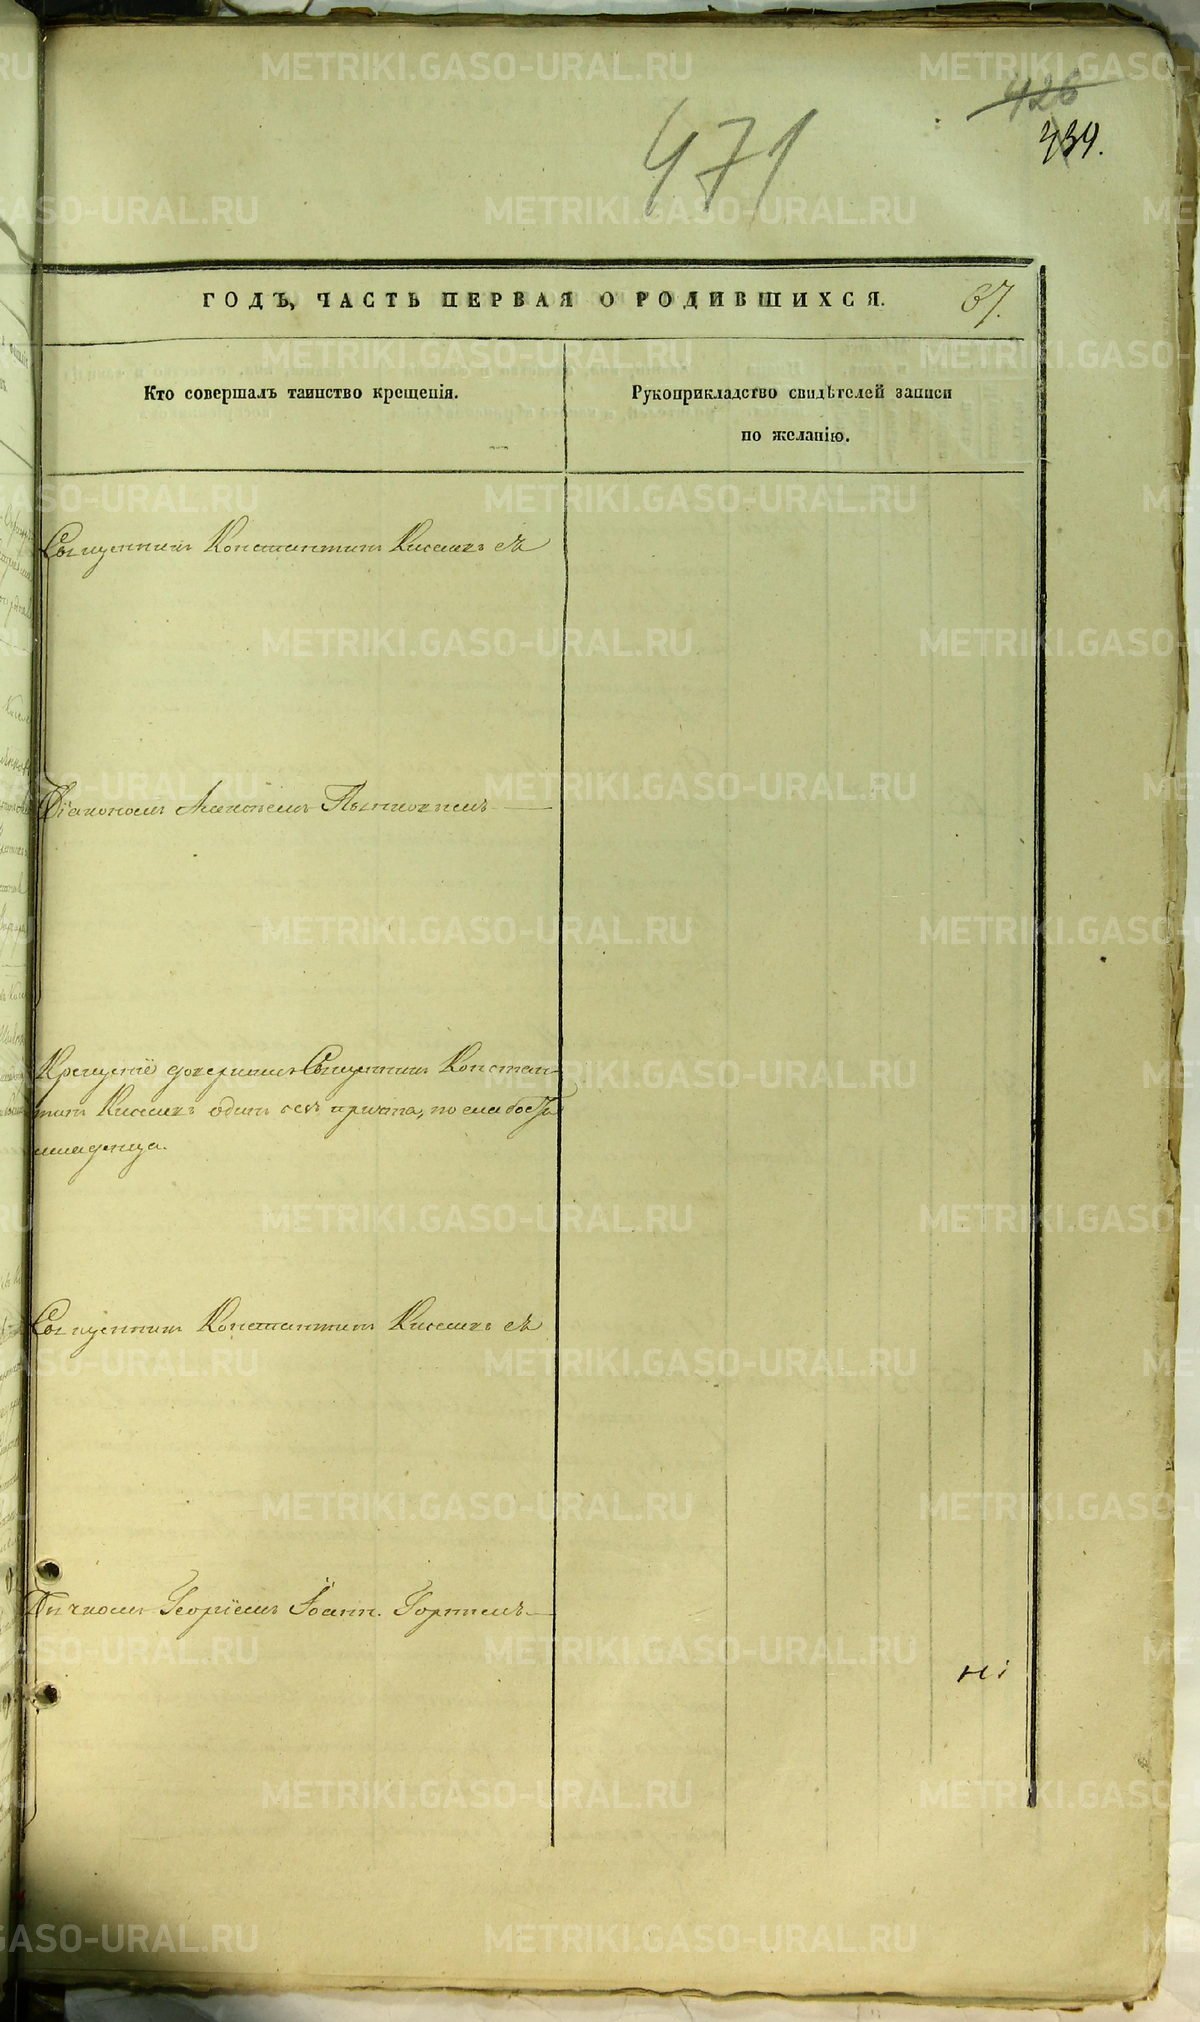 426
434.
471
ГОДЪ, ЧАСТЬ ПЕРВАЯ О РОДИВШИХСЯ.
37.
Кто совершалъ таинство крещенія.
Рукоприкладство свидѣтелей записи
по желанію.
Священникъ Константинъ Киселевъ съ
Діакономъ Максимомъ
Крещеніе довершилъ Священникъ Констан-
тинъ Киселевъ одинъ безъ причта, по слабости
младенца.
Священникъ Константинъ Киселевъ съ
Дьячкомъ Георгіемъ Іоанн.
METRIKI.GASO-URAL.RU